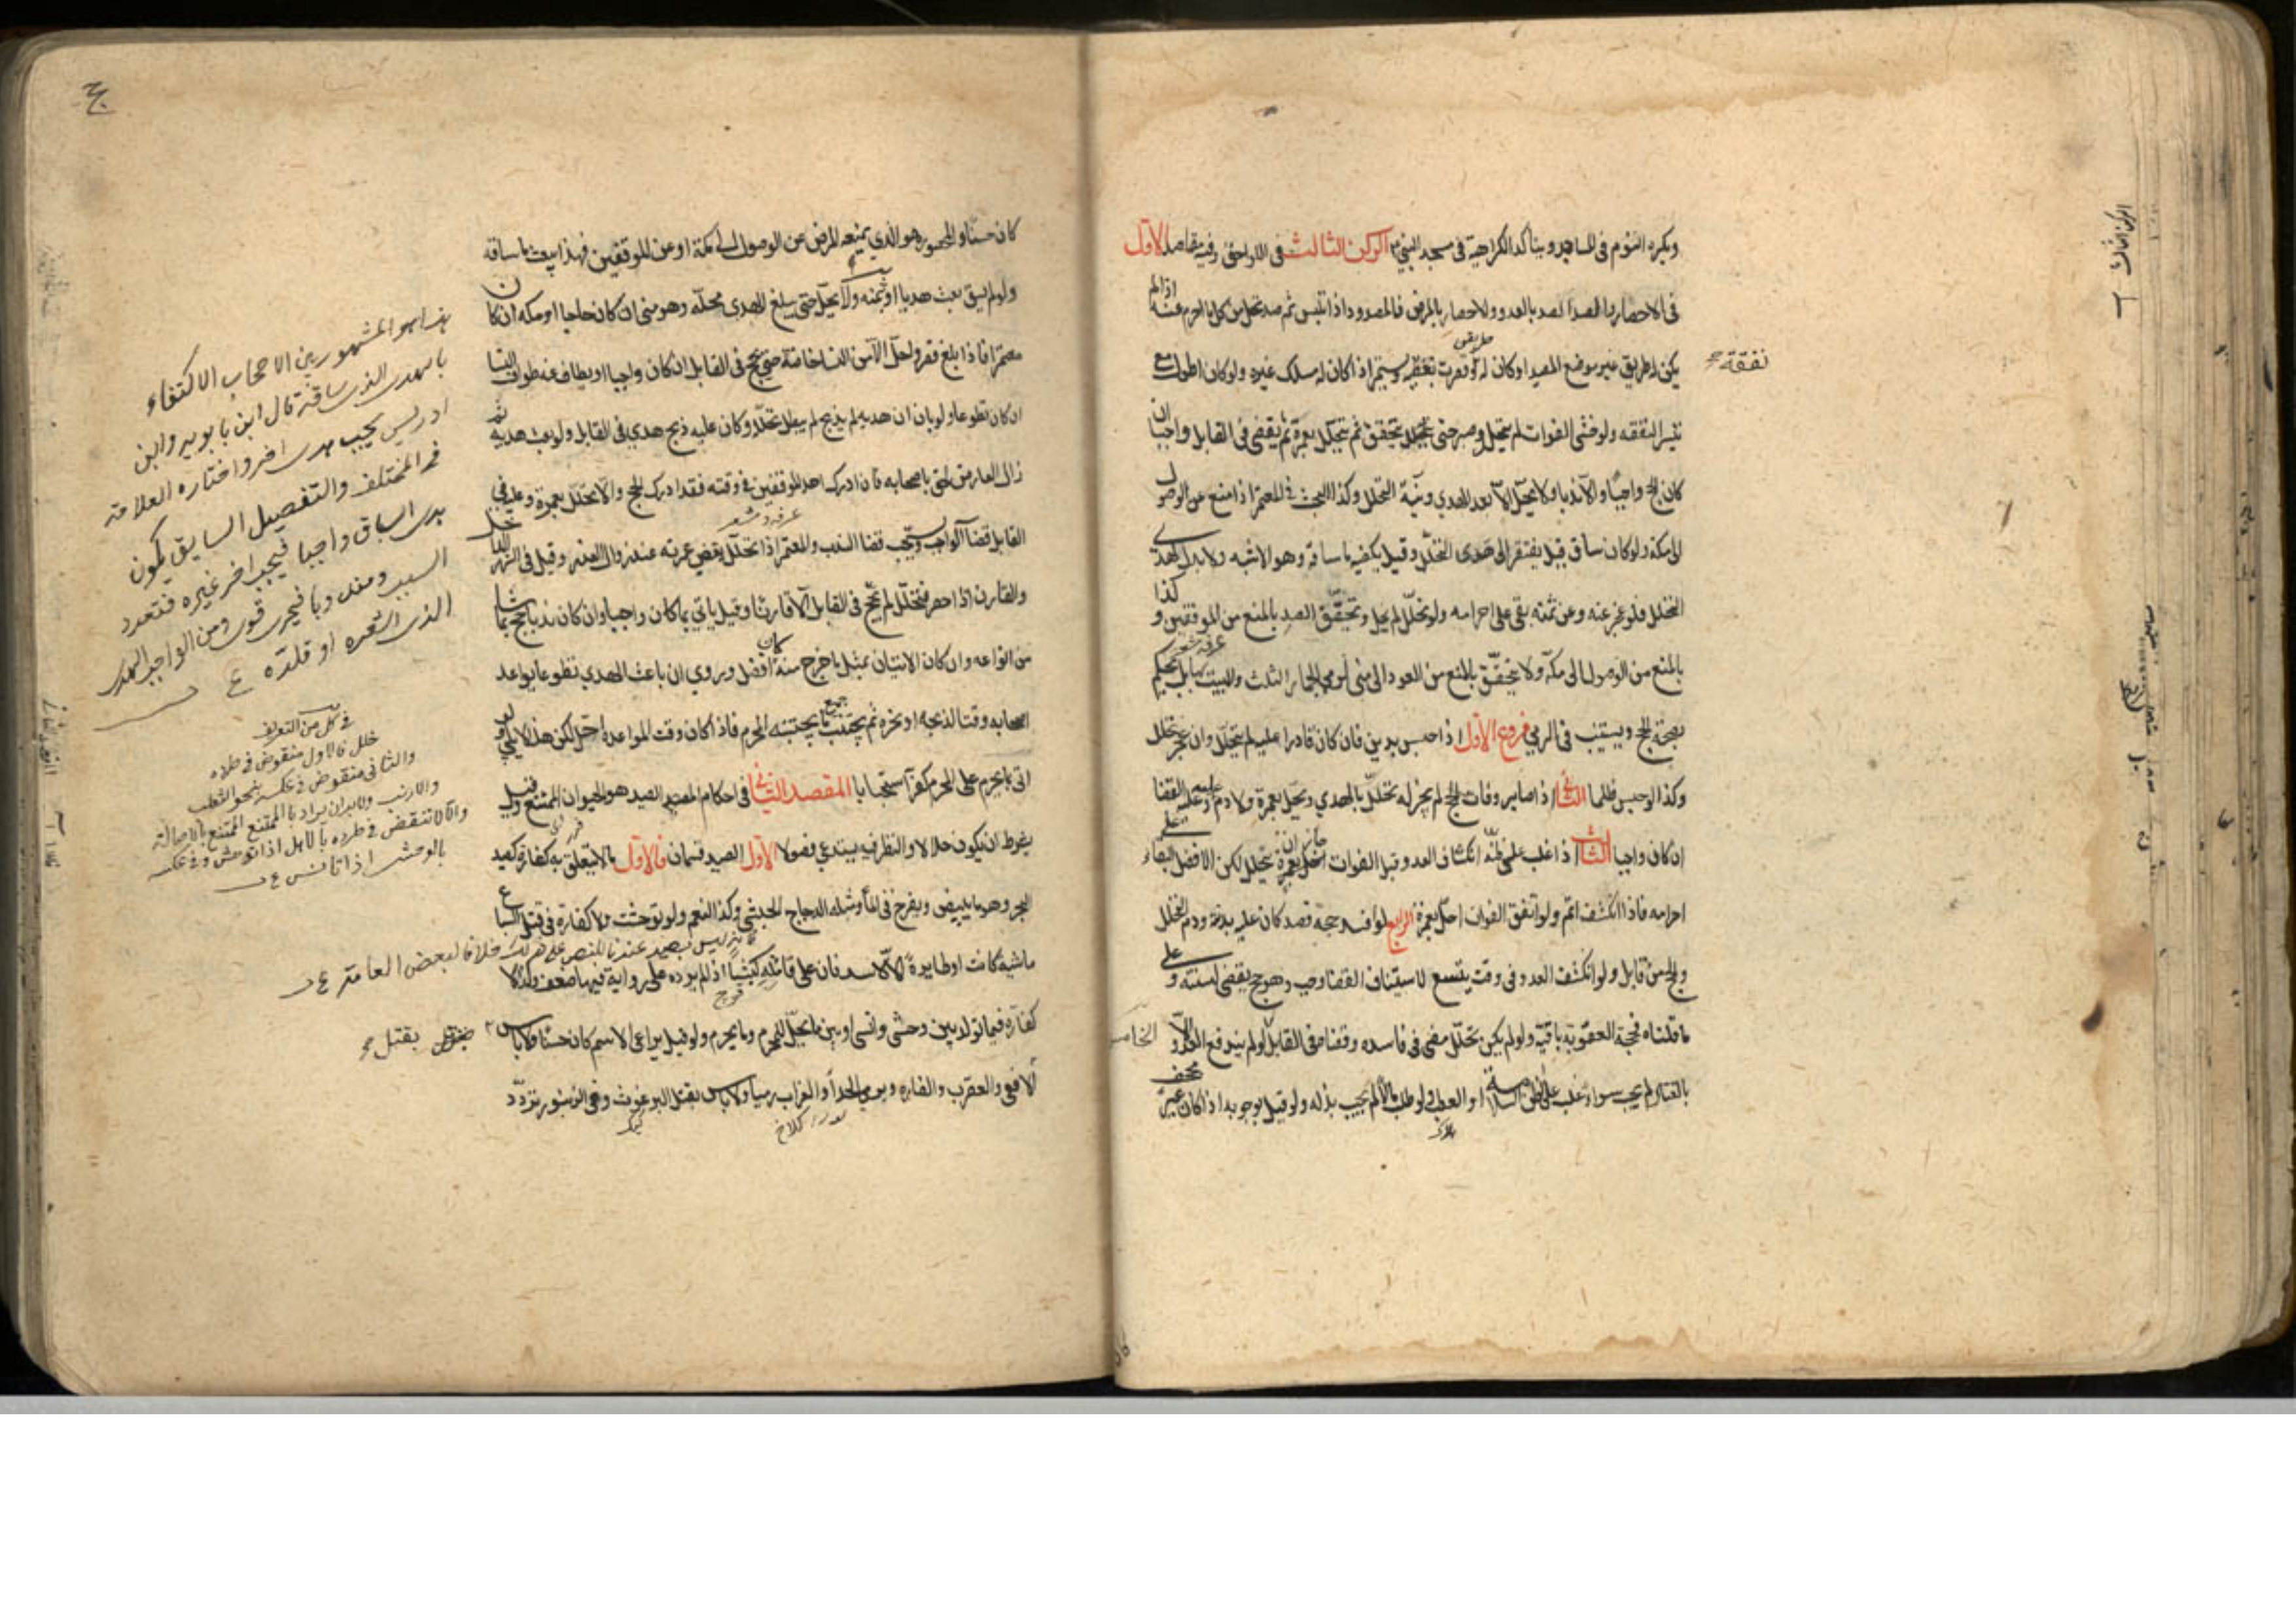 ويكره النوم في المساجد ويتأكد الكراهية في مسجد النبي الركن الثالث في اللواحق وفيه مقاصد الاول
في الاحصار والصد الصد بالعدو والاحصار بالمرض فالمصدود اذا تلبس ثم صد تحلل من كل ما احرم منه اذا لم
يكن له طريق غير موضع الصد او كان له وقصرت نفقته ويستمر اذا كان له مسلك غيره ولو كان اطول مع
نفقة
تيسر النفقه ولو خشي الفوات لم يتحلل وصبر حتى يتحقق ثم يتحلل بعمرة ثم يقضي في القابل واجبا ان
كان الحج واجبا والا ندبا ولا يحل الا بعد الهدي ونية التحلل وكذا البحث في المعتمر اذا منع عن الوصول
الى مكة ولو كان ساق قيل يفتقر الى هدى التحلل وقيل يكفيه ما ساقه وهو الاشبه ولا بدل لهدى
التحلل فلو عجز عنه وعن ثمنه بقى على احرامه ولو تحلل لم يحل ويتحقق الصد بالمنع من الموقفين وكذا
بالمنع من الوصول الى مكة ولا يتحقق بالمنع من العود الى منى لرمي الجمار الثلث والمبيت بها بل يحكم
بصحة الحج ويستنيب في الرمي فروع الاول اذا حبس بدين فان كان قادرا عليه لم يتحلل وان عجز تحلل
وكذا لو حبس ظلما الثاني اذا صابر وفات الحج لم يجز له تحلل بالهدي وتحلل بعمرة ولا دم وعليه القضا
ان كان واجبا الثالث اذا غلب على ظنه انكشاف العدو قبل الفوات جاز ان يتحلل لكن الافضل البقاء على
احرامه فاذا انكشف اتم ولو اتفق الفوات احل بعمرة الرابع لو افسد حجه فصد كان عليه بدنة ودم التحلل
والحج من قابل ولو انكشف العدو في وقت يتسع لاستيناف القضا وجب وهو حج يقضى لسنته وعلى
ما قلناه فحجة العقوبة باقية ولو لم يكن تحلل مضى في فاسده وقضاه في القابل الخامس لو لم يندفع العدو الا
بالقتال لم يجب سواء غلب على الظن السلامة او العطب ولو طلب مالا لم يجب بذله ولو قيل بوجوبه اذا كان غير مجحف
كان حسنا والمحصور هو الذي يمنعه المرض عن الوصول الى مكة او عن الموقفين فهذا يبعث ما ساقه
ولو لم يسق بعث هديا او ثمنه ولا يحل حتى يبلغ الهدى محله وهو منى ان كان حاجا او مكه ان كان
معتمرا فاذا بلغ قصر واحل الا من النساء خاصة حتى يحج في القابل ان كان واجبا او يطاف عنه طواف النسا
ان كان تطوعا ولو بان ان هديه لم يذبح لم يبطل تحلله وكان عليه ذبح هدي في القابل ولو بعث هديه ثم
زال العارض لحق باصحابه فان ادرك احد الموقفين في وقته فقد ادرك الحج والا تحلل بعمرة وعليه في
القابل قضا الواجب ويستحب قضا الندب والمعتمر اذا تحلل يقضي عمرته عند زوال العذر وقيل في الشهر الداخل
والقارن اذا احصر فتحلل لم يحج في القابل الا قارنا وقيل ياتي بما كان واجبا وان كان ندبا حج بما شا
من انواعه وان كان الاتيان بمثل ما خرج منه افضل وروي ان باعث الهدي تطوعا يواعد
اصحابه وقتا لذبحه او نحره ثم يجتنب جميع ما يجتنبه المحرم فاذا كان وقت المواعدة احل لكن هذا لا يلبي ولو
اتى بما يحرم على المحرم كفر استحبابا المقصد الثاني في احكام الصيد الصيد هو الحيوان الممتنع وقيل
يشترط ان يكون حلالا والنظر فيه يستدعي فصولا الاول الصيد قسمان فالاول ما لا يتعلق به كفارة كصيد
البحر وهو ما يبيض ويفرخ في الماء ومثله الدجاج الحبشي وكذا النعم ولو توحشت ولا كفارة في قتل السباع
ماشية كانت او طايرة الا الاسد فان على قاتله كبشا اذا لم يرده على رواية فيها ضعف وكذا لا
كفارة فيما تولد بين وحشى وانسى او بين ما يحل للمحرم وما يحرم ولو قيل يراعى الاسم كان حسنا ولا باس
بقتل
الافعى والعقرب والفاره وبرمي الحدأ والغراب رميا ولا باس بقتل البرغوث وفي الزنبور تردد
هذا هو المشهور بين الاصحاب الاكتفاء
بالهدى الذى ساقه قال ابن بابويه وابن
ادريس يجب هدى اخر واختاره العلامة
في المختلف والتفصيل السابق يكون
هدى السياق واجبا فيجب اخر غيره فتعدد
السبب ومندوبا فيجزى قوى ومن الواجب الهدى
الذى اشعره او قلده ع
في كل من التعريف
خلل فالاول منقوض في طرده
والثاني منقوض في عكسه بنحو الثعلب
والارنب ولا بد ان يراد بالممتنع الممتنع بالاصالة
والا لانتقض في طرده بالاهل اذا توحش وفي عكسه
بالوحش اذا تانس ع
فانه ليس بصيد عندنا للنص على ذلك خلافا لبعض العامة ع